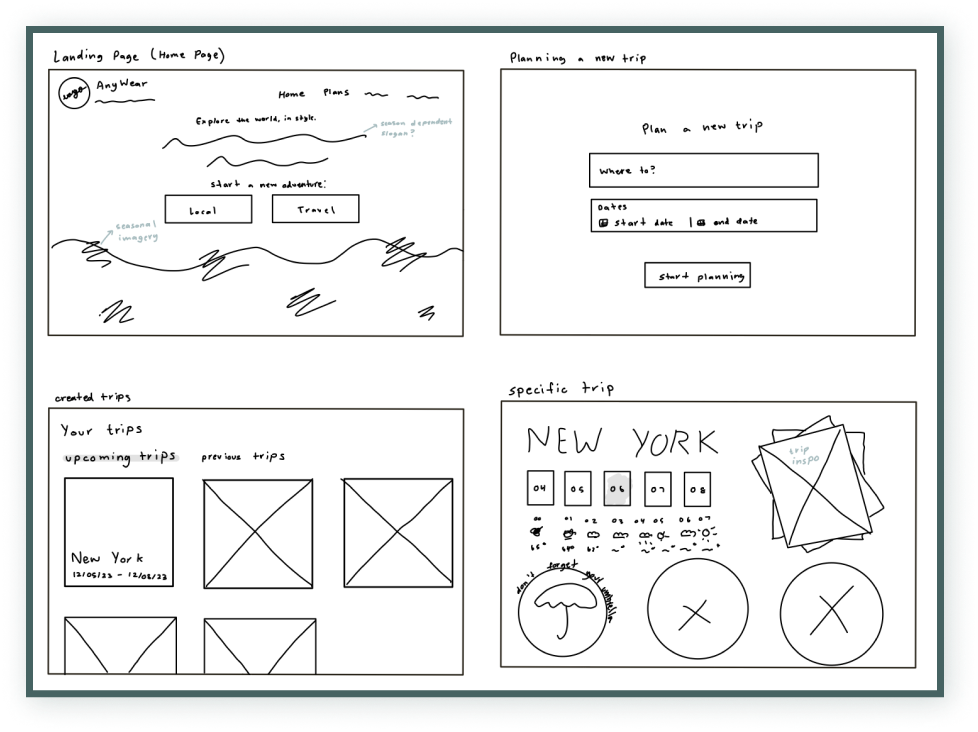 Landing Page (Home Page)
logo
AnyWear
Home Plans
Explore the world, in style.
season dependent
slogan?
start a new adventure:
Local
Travel
seasonal
imagery
Planning a new trip
Plan a new trip
where to?
Dates
start date | end date
start planning
created trips
Your trips
upcoming trips previous trips
New York
12/05/23 - 12/08/23
specific trip
NEW YORK
04 05 06 07 08
trip
inspo
00 01 02 03 04 05 06 07
don't forget your umbrella